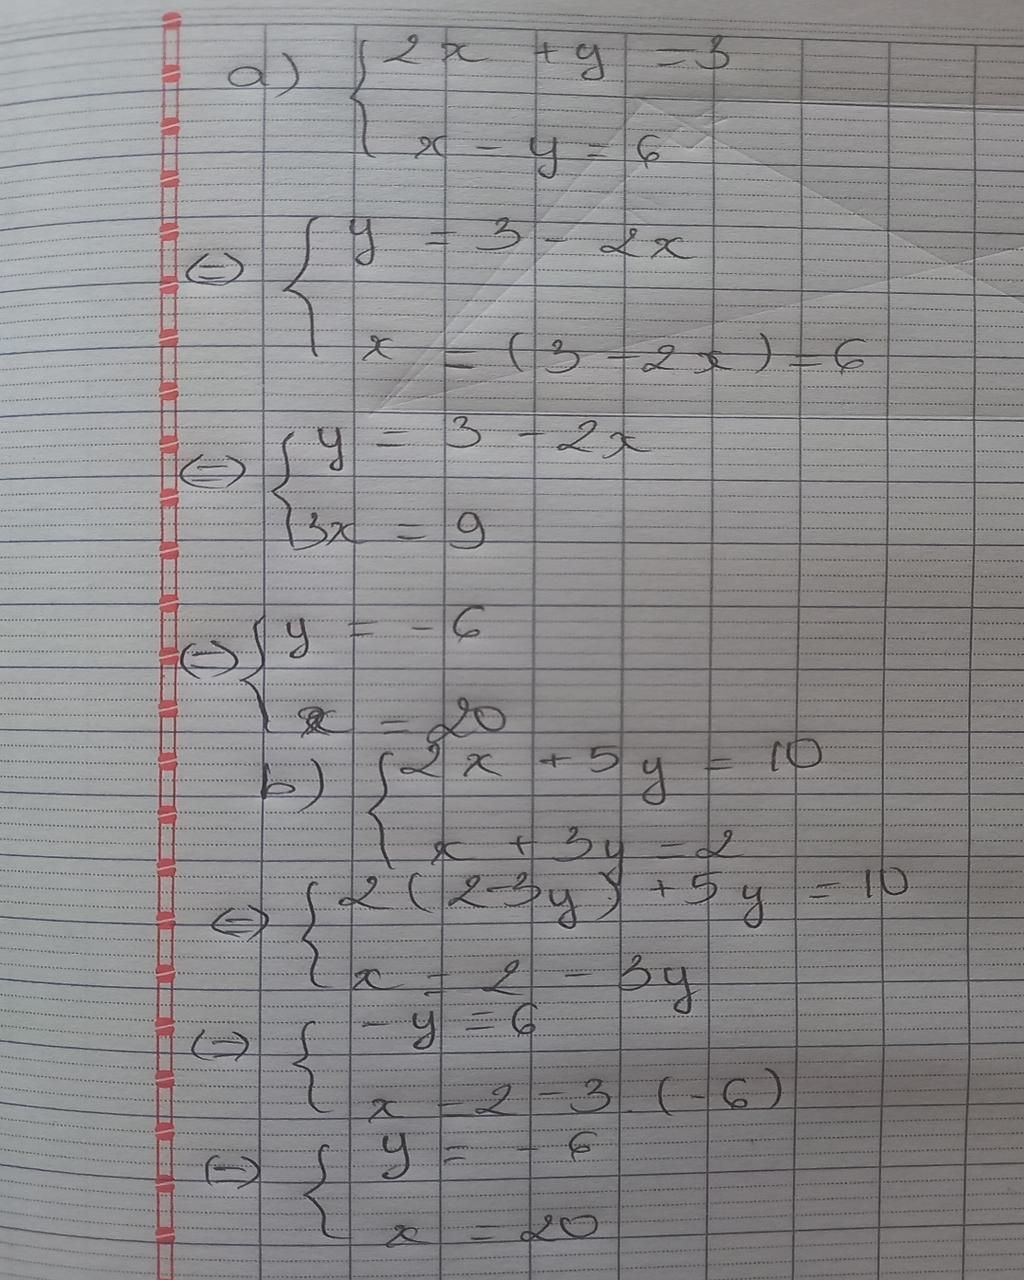 a) { 2x + y = 3
x - y = 6
⇔ { y = 3 - 2x
x = (3 - 2x) = 6
⇔ { y = 3 - 2x
3x = 9
⇔ { y = - 6
x = 20
b) { 2x + 5y = 10
x + 3y = 2
⇔ { 2(2-3y) + 5y = 10
x = 2 - 3y
⇔ { - y = 6
x = 2 - 3 (- 6)
⇔ { y = - 6
x = 20